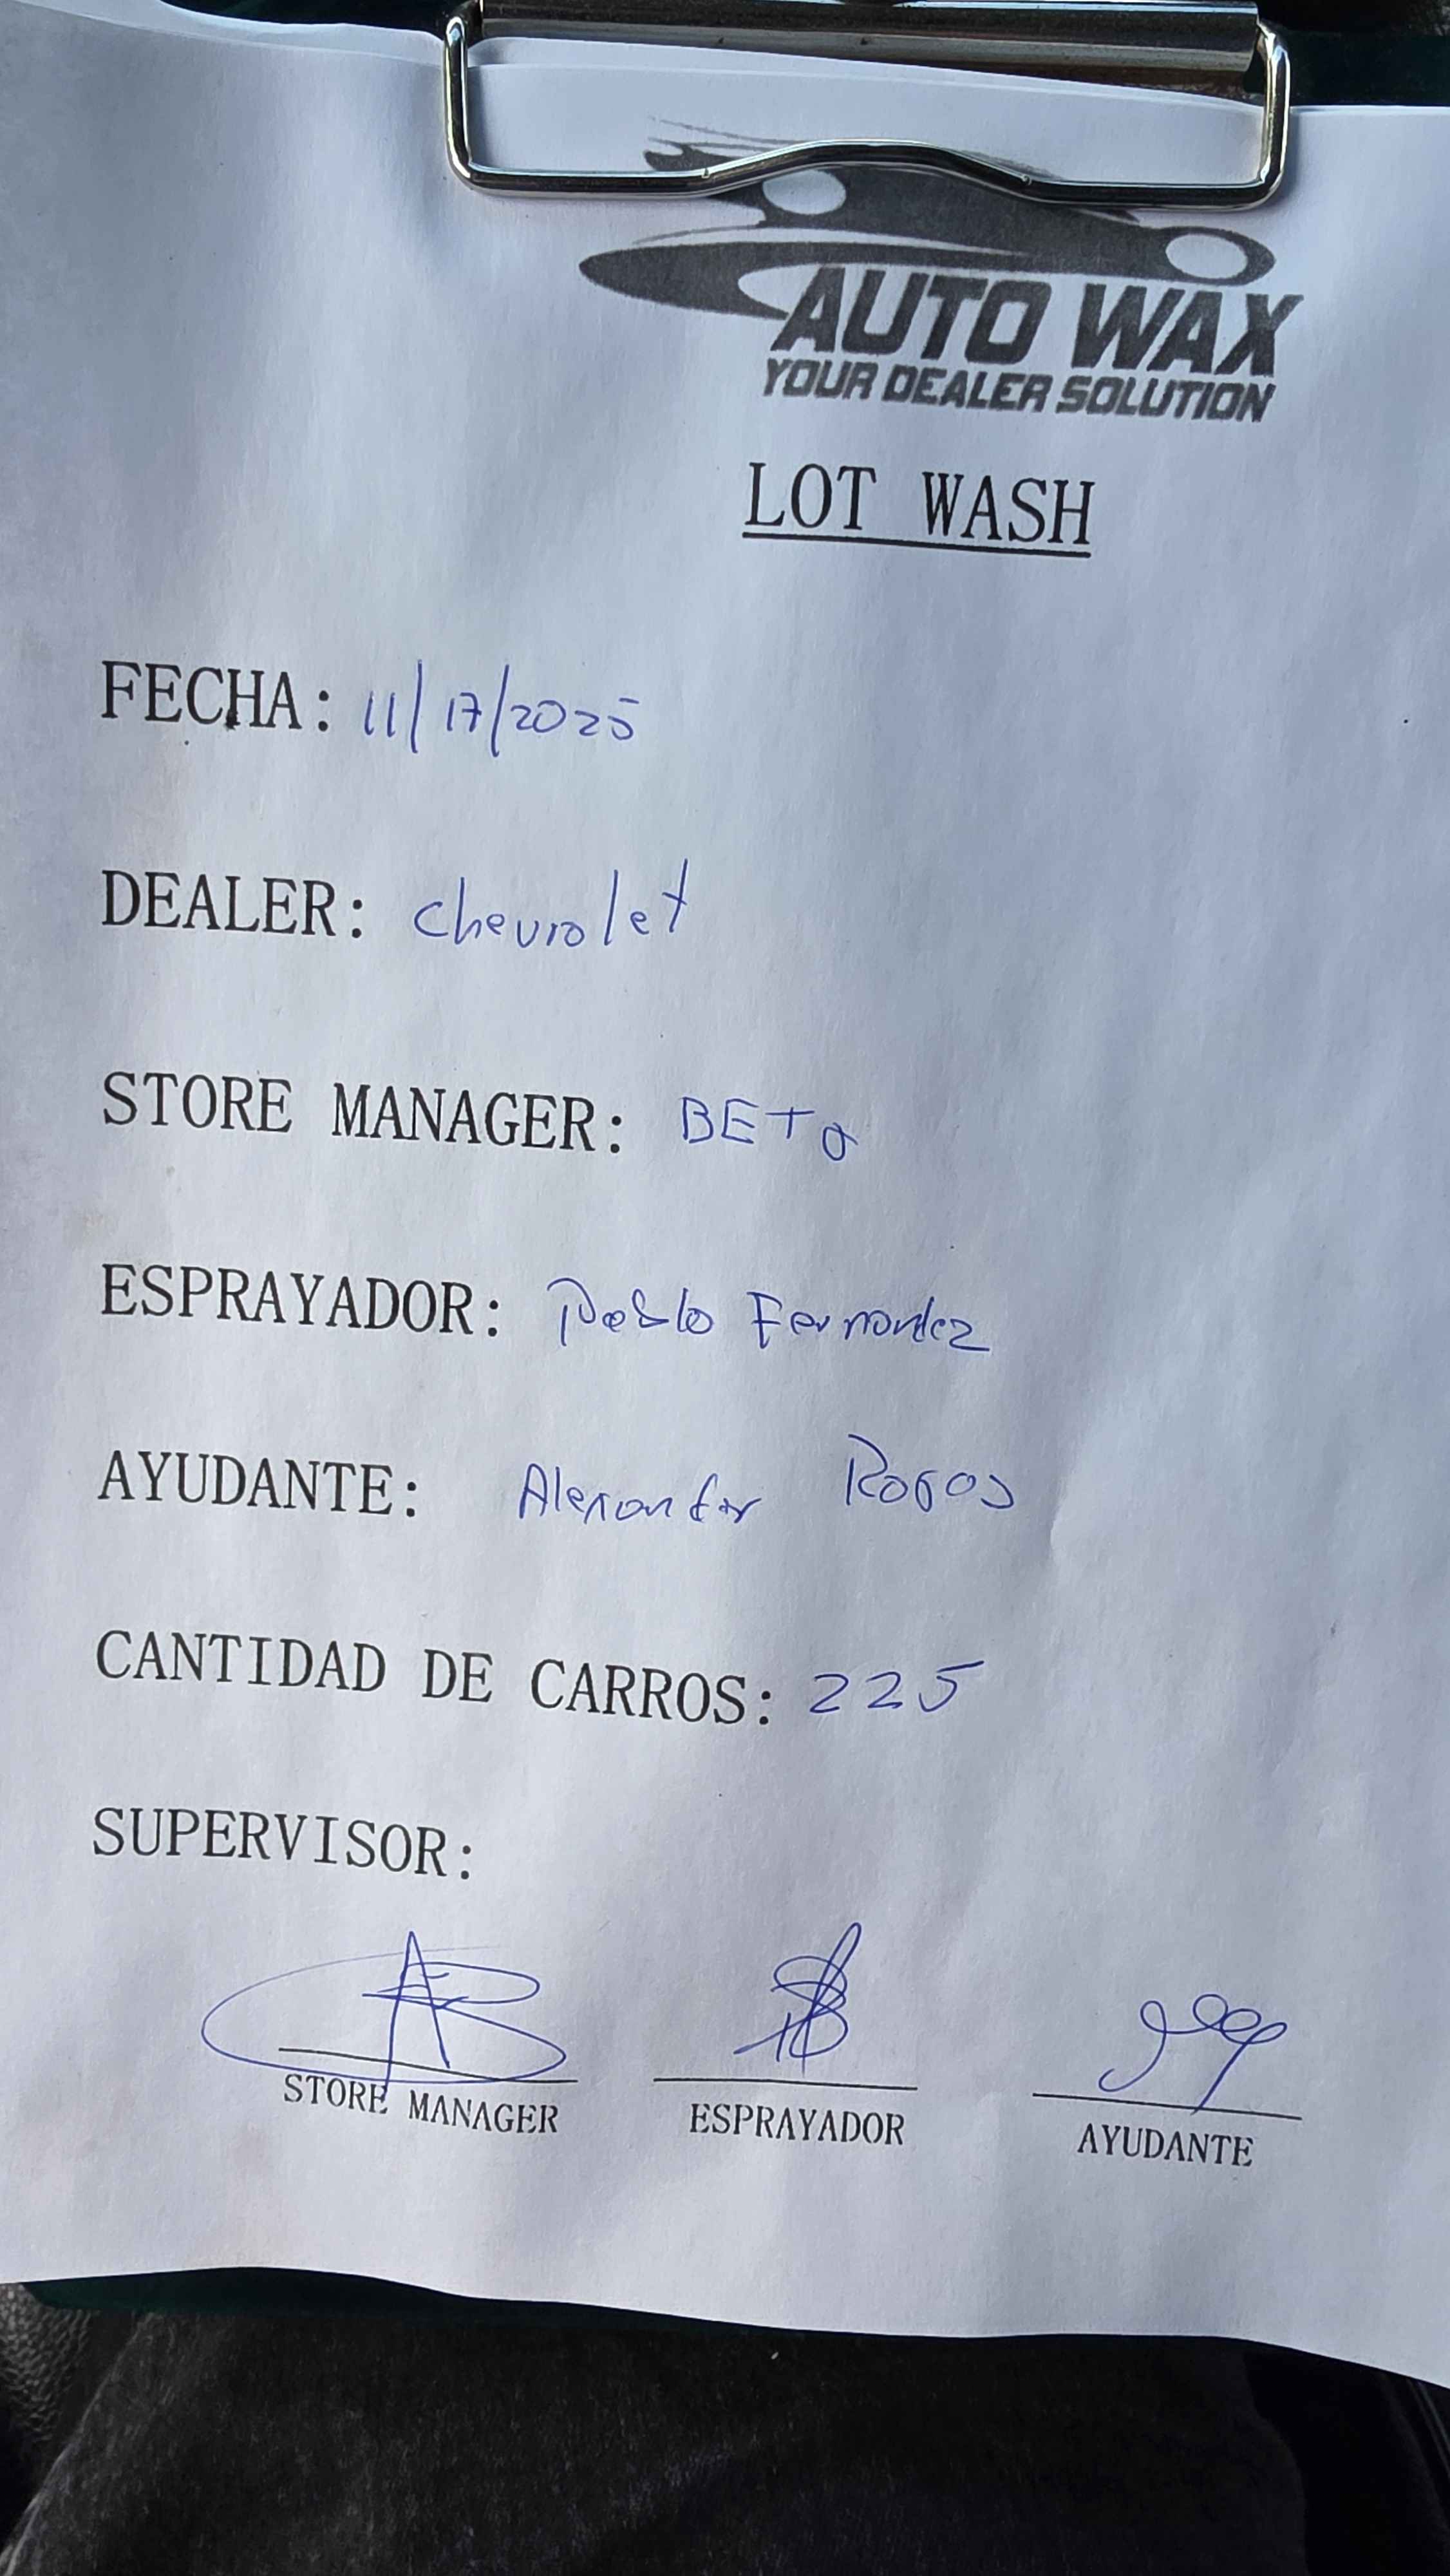 AUTO WAX
YOUR DEALER SOLUTION
LOT WASH
FECHA: 11/17/2025
DEALER: chevrolet
STORE MANAGER: BETO
ESPRAYADOR: Pablo Fernandez
AYUDANTE: Alexander
CANTIDAD DE CARROS: 225
SUPERVISOR:
STORE MANAGER ESPRAYADOR AYUDANTE